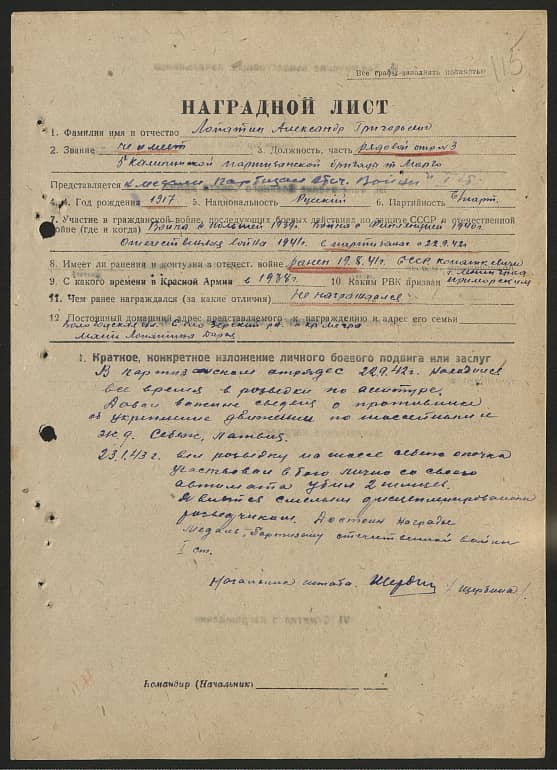 115
Все графы заполнять полностью
НАГРАДНОЙ ЛИСТ
1. Фамилия имя и отчество Лопатин Александр Григорьевич
2. Звание не имеет 3. Должность, часть рядовой отр. № 3
5 Калининской партизанской бригады т. Марго
Представляется к медали „Партизан Отеч. Войны" I ст.
4. Год рождения 1917 5. Национальность Русский 6. Партийность б/парт.
7. Участие в гражданской войне, последующих боевых действиях по защите СССР и отечественной
войне (где и когда) Война с Польшей 1939г. Война с Финляндией 1940г.
Отечественная война 1941г. в партизанах с 22.9.42г.
8. Имеет ли ранения и контузии в отечест. войне ранен 19.8.41г. БССР
9. С какого времени в Красной Армии с 1938г. 10. Каким РВК призван Приморским
11. Чем ранее награждался (за какие отличия) Не награждался
12. Постоянный домашний адрес представляемого к награждению и адрес его семьи
Вологодская обл.
Мать Лопатина Дарья
1. Краткое, конкретное изложение личного боевого подвига или заслуг
В партизанском отряде с 22.9.42г. Находился
все время в разведки по агентуре.
Давал важные сведения о противнике
об укреплении движении по шоссе и
ж.д. Себеж, Латвия.
23.1.43г. вел разведку на шоссе Опочка
участвовал в бою лично со своего
автомата убил 2 немцев.
Является смелым дисциплинированным
разведчиком. Достоин награды
Медаль „Партизану отечественной войны
I ст.
Начальник штаба Щербин /Щербина/
Командир (Начальник)